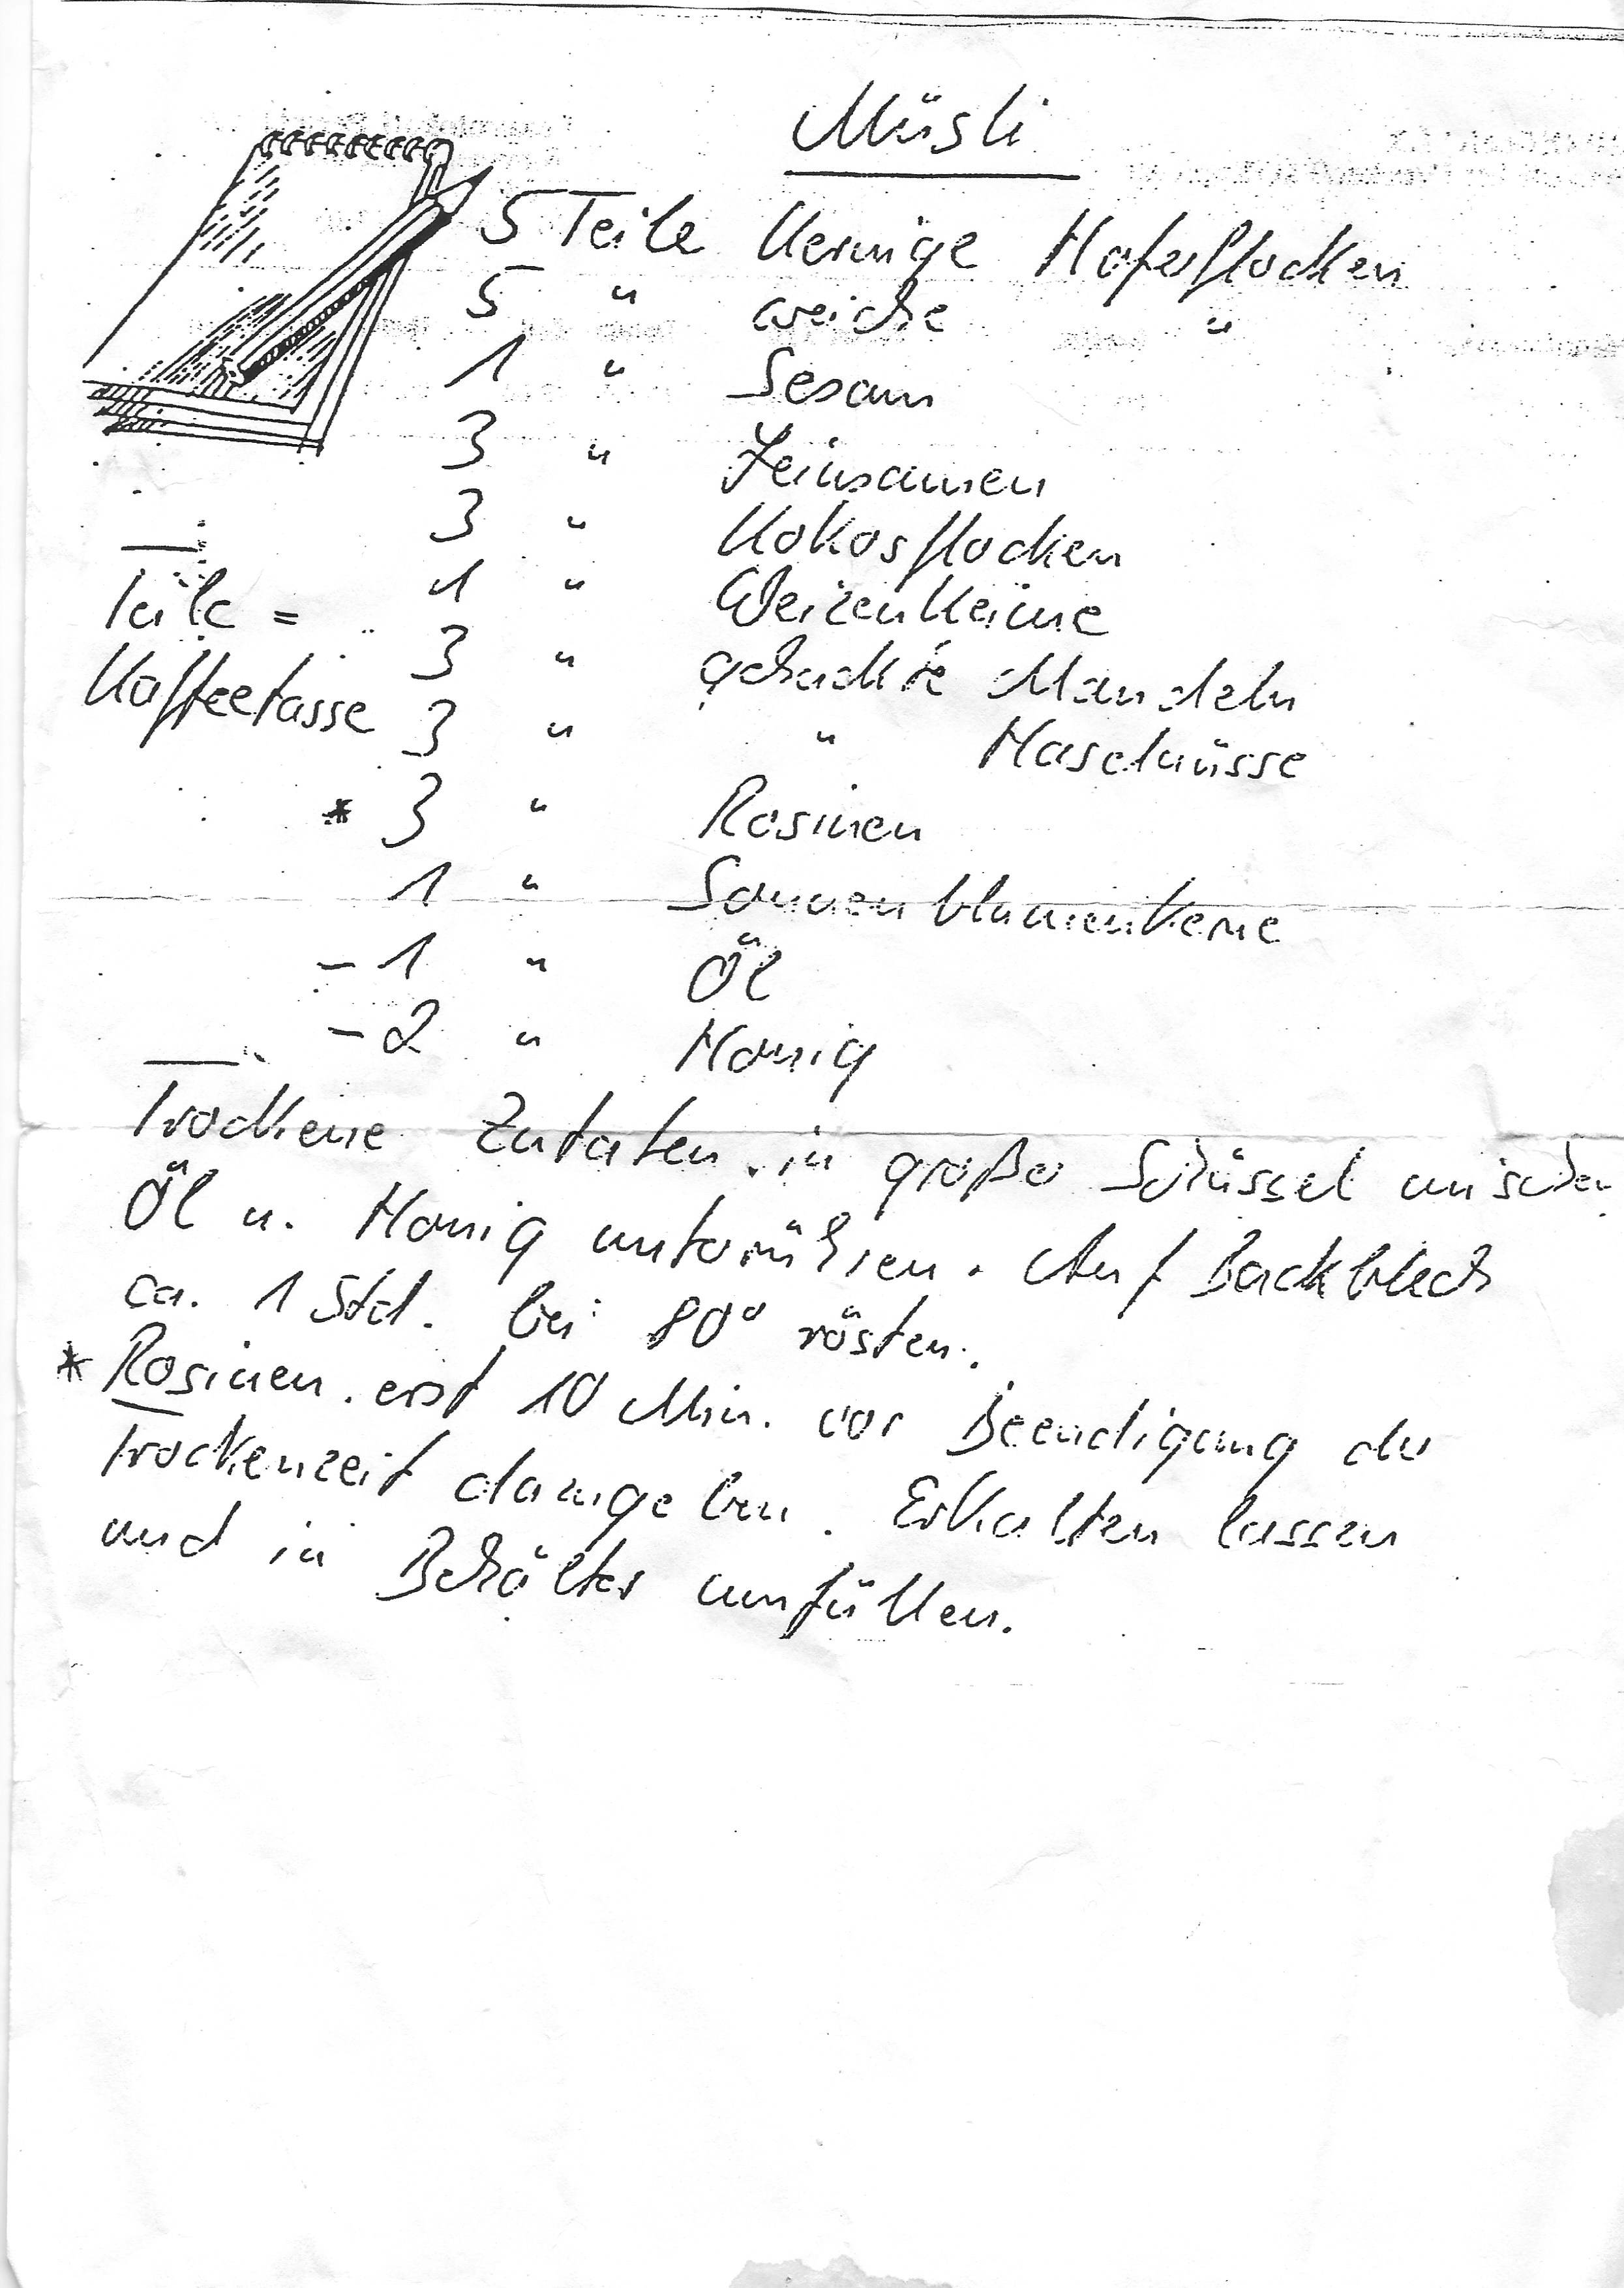 Müsli
5 Teile Kernige Haferflocken
5 " weiche "
1 " Sesam
3 " Leinsamen
3 " Kokosflocken
1 " Weizenkeime
3 " gehackte Mandeln
3 " " Haselnüsse
* 3 " Rosinen
1 " Sonnenblumenkerne
- 1 " Öl
- 2 " Honig
Teile =
Kaffeetasse
Trockene Zutaten in großer Schüssel mischen
Öl u. Honig unterrühren. Auf Backblech
ca. 1 Std. bei 80° rösten.
* Rosinen erst 10 Min. vor Beendigung der
Trockenzeit dazugeben. Erkalten lassen
und in Behälter umfüllen.